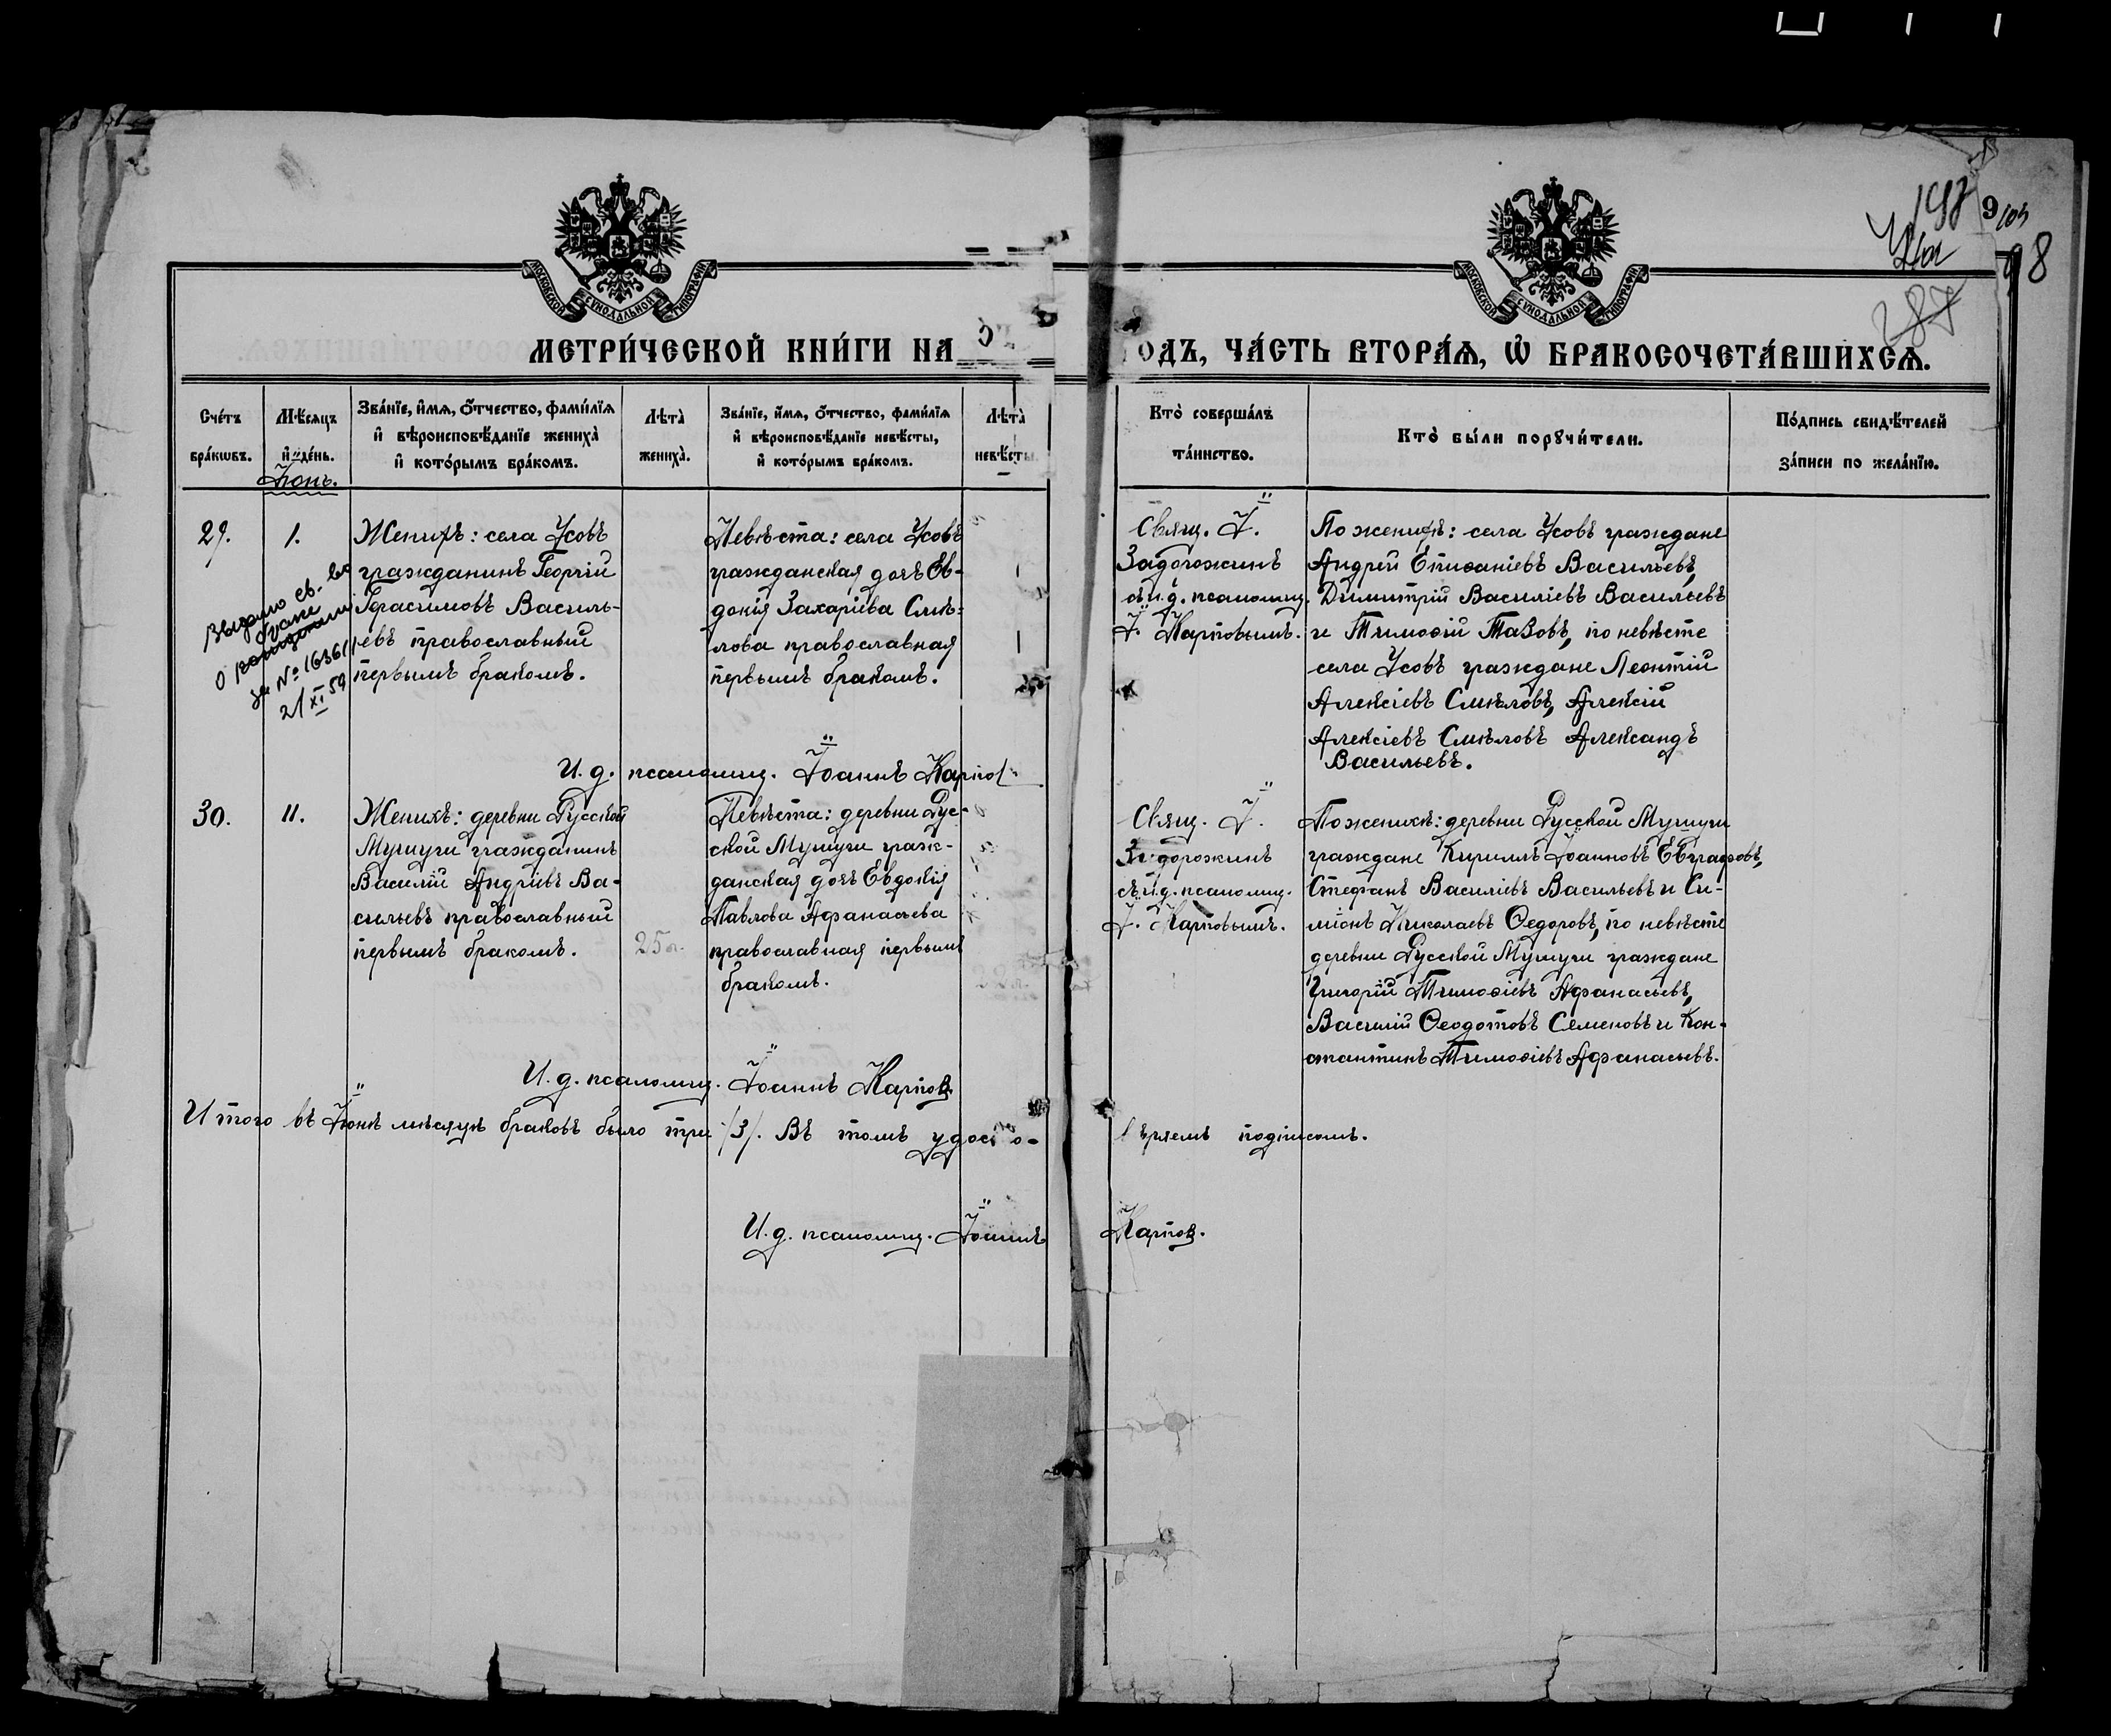 МОСКОВСКОЙ СѴНОДАЛЬНОЙ ТИПОГРАФІИ
МОСКОВСКОЙ СѴНОДАЛЬНОЙ ТИПОГРАФІИ
9
98
МЕТРИ́ЧЕСКОЙ КНИ́ГИ НА
ОДЪ, ЧА́СТЬ ВТОРА́Ѧ, Ѽ БРАКОСОЧЕТА́ВШИХСѦ.
Сче́тъ бра́кѡвъ.
Мѣ́сяцъ и҆ де́нь.
Зва́нїе, и҆́мѧ, ѻ҆́тчество, фами́лїѧ
и҆ вѣроисповѣ́данїе жениха̀
и҆ кото́рымъ бра́комъ.
Лѣта̀ жениха̀.
Зва́нїе, и҆́мѧ, ѻ҆́тчество, фами́лїѧ
и҆ вѣроисповѣ́данїе невѣ́сты,
и҆ кото́рымъ бра́комъ.
Лѣта̀ невѣ́сты
Кто̀ соверша́лъ
та́инство.
Кто̀ бы́ли порꙋчи́тели.
По́дпись свидѣ́телей
за́писи по жела́нїю.
Іюнь.
29.
1.
Женихъ: села Усовъ
гражданинъ Георгій
Герасимовъ Василь-
евъ православный
первымъ бракомъ.
Невѣста: села Усовъ
гражданская дочь Ев-
докія Захаріева Смѣ-
лова православная
первымъ бракомъ.
Свящ. І.
Задорожинъ
съ и.д. псаломщ.
І. Карповымъ.
По женихѣ: села Усовъ граждане
Андрей Епифаніевъ Васильевъ,
Димитрій Василіевъ Васильевъ
и Тимоѳій Тазовъ, по невѣсте
села Усовъ граждане Леонтій
Алексіевъ Смѣловъ, Алексій
Алексіевъ Смѣловъ Александъ
Васильевъ.
Выдано св. во
о браке
за № 16361
21 XI 59
И. д. псаломщ. Іоаннъ Карпов
30.
11.
Женихъ: деревни Русской
Мушуги гражданинъ
Василій Андріевъ Ва-
сильевъ православный
первымъ бракомъ.
25 л.
Невѣста: деревни Рус-
ской Мушуги граж-
данская дочь Евдокія
Павлова Афанасьева
православная первымъ
бракомъ.
22 л.
Свящ. І.
Задорожинъ
съ и.д. псаломщ.
І. Карповымъ.
По женихѣ: деревни Русской Мушуги
граждане Кириллъ Іоанновъ Евграфовъ,
Стефанъ Василіевъ Васильевъ и Си-
міонъ Николаевъ Ѳедоровъ, по невѣсте
деревни Русской Мушуги граждане
Григорій Тимоѳіевъ Афанасьевъ,
Василій Ѳеодотовъ Семеновъ и Кон-
стантинъ Тимоѳіевъ Афанасьевъ.
И. д. псаломщ. Іоаннъ Карпов.
Итого въ Іюнѣ мѣсяцѣ браковъ было три /3/. Въ томъ удосто-
вѣряемъ подписомъ.
И. д. псаломщ. Іоаннъ Карпов.